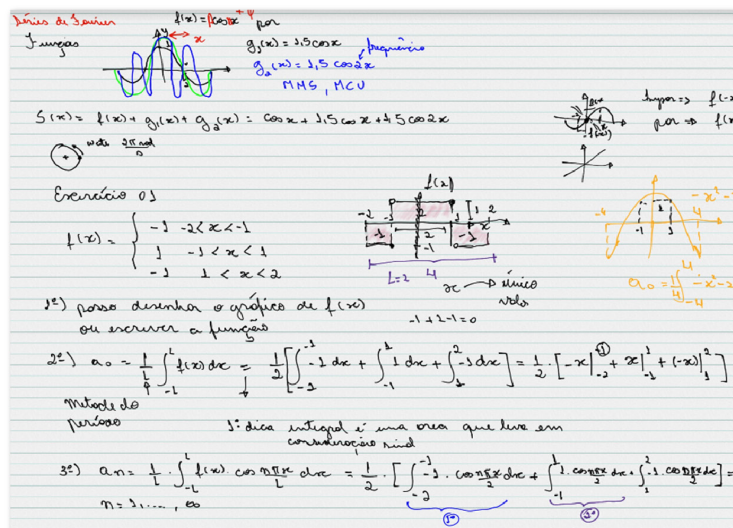 Séries de Fourier
f(x)= βcosx + φ
Funções
por
g₁(x) = 1,5 cosx
g₂(x) = 1,5 cos2x frequência
MMS, MCU
S(x) = f(x) + g₁(x) + g₂(x) = cosx + 1,5 cosx + 1,5 cos2x
impar => f(-x
par => f(x)
w=2π rad
Exercício 01
f(x) = { -1 -2<x<-1
1 -1<x<1
-1 1<x<2
f(x)
-2 -1 1 2
2
-1 2 -1
-1
L=2 4
x → único
valor
-1+2-1=0
-x²
-4 4
-1 1
a₀ = 1/4 ∫₋₄⁴ -x²-
1º) posso desenhar o gráfico de f(x)
ou escrever a função
2º) a₀ = 1/L ∫₋L^L f(x) dx = 1/2 [∫₋₂⁻¹ -1 dx + ∫₋₁¹ 1 dx + ∫₁² -1 dx] = 1/2 · [-x|₋₂⁻¹ + x|₋₁¹ + (-x)|₁²]
Metade do
período
1ª dica integral é uma area que leva em
consideração sinal
3º) an = 1/L · ∫₋L^L f(x) · cos nπx/L dx = 1/2 · [∫₋₂⁻¹ -1 · cos nπx/2 dx + ∫₋₁¹ 1 · cos nπx/2 dx + ∫₁² -1 · cos nπx/2 dx] =
n = 1,..., ∞